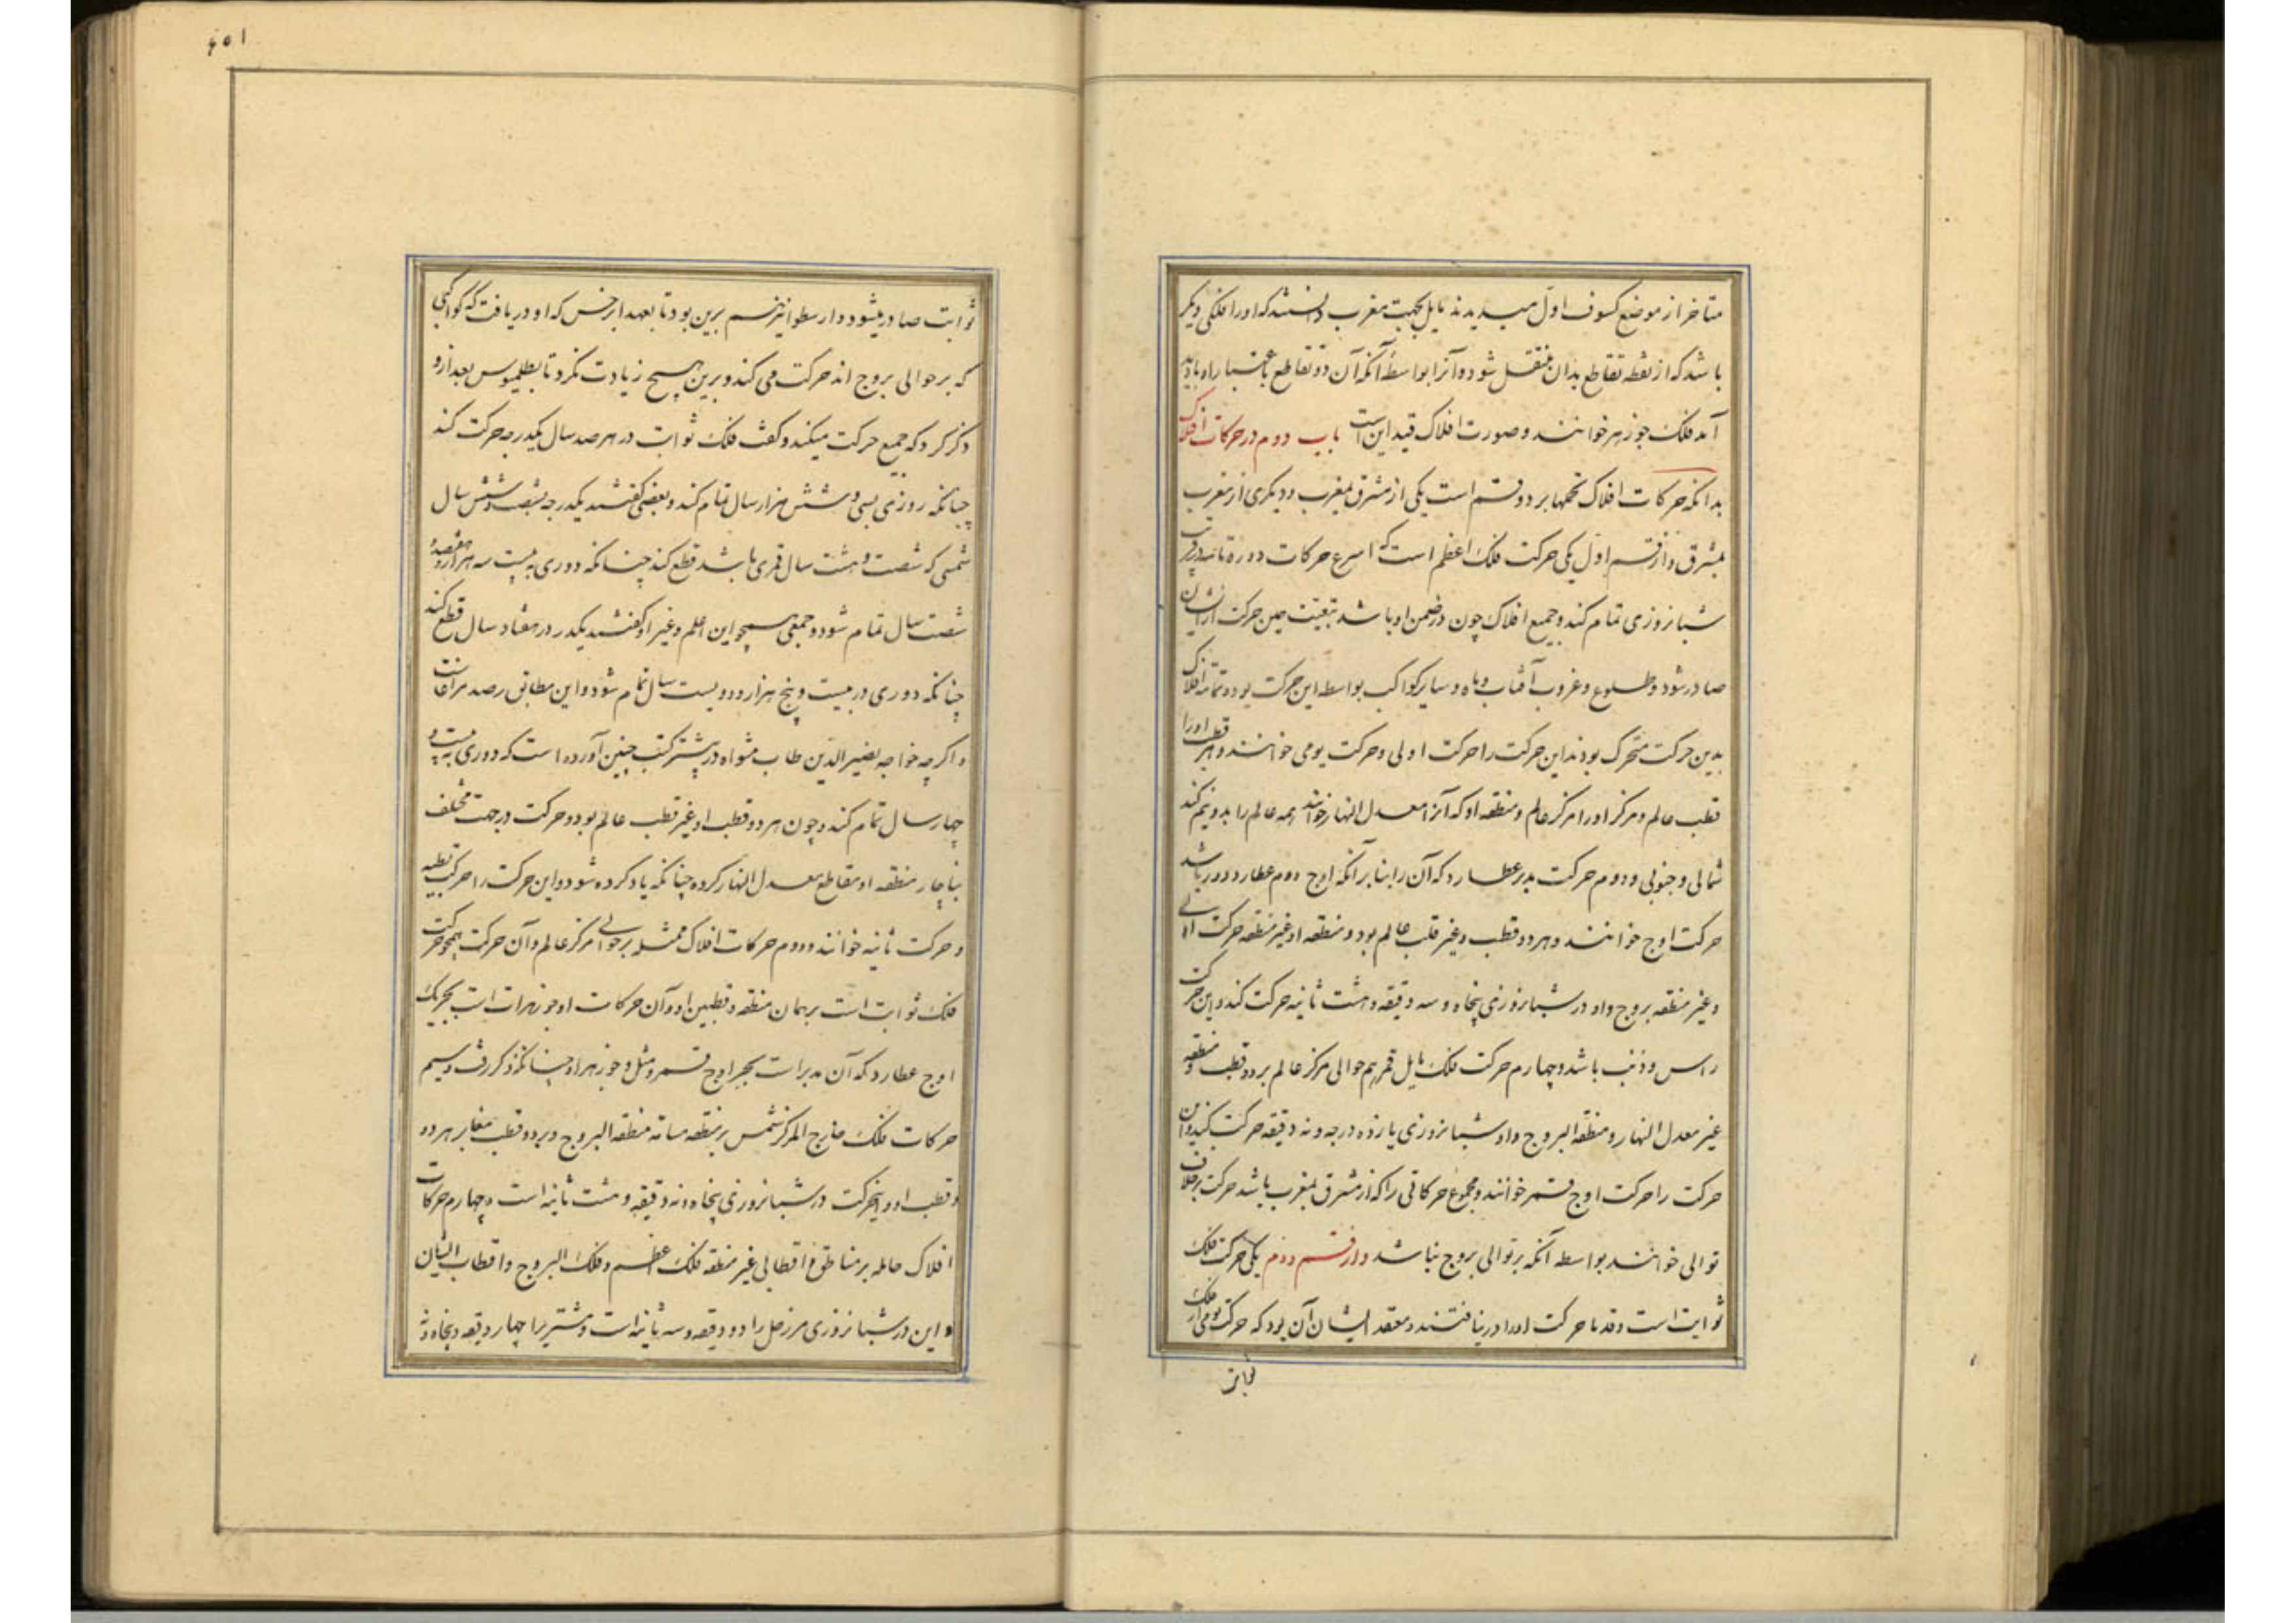 متاخر از موضع کسوف اول میدیدند مایل بجهت مغرب دانستند که او را فلکی دیکر
باشد که از نقطه تقاطع بدان منتقل شود و آنرا بواسطه آنکه آن دو تقاطع باعتبار راه بادید
آمد فلک جوزهر خوانند و صورت افلاک قید این است باب دوم در حرکات افلاک
بدانکه حرکات افلاک کلها بر دو قسم است یکی از مشرق بمغرب و دیکری از مغرب
بمشرق و از قسم اول یکی حرکت فلک اعظم است که اسرع حرکات دوره تا بدور قریب
شبانروزی تمام کند و جمیع افلاک چون در ضمن او باشد تبعیت حین حرکت از ایشان
صادر شود و طلوع و غروب آفتاب و ماه و سایر کواکب بواسطه این حرکت بود و تمامه افلاک
بدین حرکت متحرک بودند این حرکت را حرکت اولی و حرکت یومی خوانند و هر قطب او را
قطب عالم و مرکز او را مرکز عالم و منطقه او که آنرا معدل النهار خوانند همه عالم را بدو نیم کند
شمالی و جنوبی و دوم حرکت مدیر عطارد که آن را بنابر آنکه اوج دوم عطارد دور باشد
حرکت اوج خوانند و هر دو قطب و غیر قلب عالم بود و منطقه او غیر منطقه حرکت اولی
و غیر منطقه بروج و او در شبانروزی پنجاه و سه دقیقه و هشت ثانیه حرکت کند و این حرکت
راس و ذنب باشد و چهارم حرکت فلک مایل قمر هم حوالی مرکز عالم بر دو قطب و منطقه
غیر معدل النهار و منطقه البروج و او در شبانروزی یازده درجه و نه دقیقه حرکت کند و این
حرکت را حرکت اوج قمر خوانند و مجموع حرکاتی را که از مشرق بمغرب باشد حرکت بر خلاف
توالی خوانند بواسطه آنکه بر توالی بروج نباشد و از قسم دوم یکی حرکت فلک
ثوابت است و قدما حرکت او را در نیافتند و معتقد ایشان آن بود که حرکت یومی از فلک
ثوابت
۱۵۶
ثوابت صادر میشود و ارسطو نیز هم برین بود تا بعهد ابرخس که او دریافت که کواکبی
که بر حوالی بروج اند حرکت می کند و برین هیچ زیادت نکرد تا بطلمیوس بعد ازو
ذکر کرد که جمیع حرکت میکند و کفت فلک ثوابت در هر صد سال یکدرجه حرکت کند
چنانکه دوری بسی و شش هزار سال تمام کند و بعضی کفتند یکدرجه بشصت و شش سال
شمسی که شصت و هشت سال قمری باشد قطع کند چنانکه دوری به بیست سه هزار و هفتصد و
شصت سال تمام شود و جمعی همچو ابن اعلم و غیر او کفتند یکدر در هفتاد سال قطع کند
چنانکه دوری در بیست و پنج هزار و دویست سال تمام شود و این مطابق رصد مراغا است
و اکرچه خواجه نصیر الدین طاب مثواه در بیشتر کتب چنین آورده است که دوری به بیست و
چهار سال تمام کند و چون هر دو قطب او غیر قطب عالم بود و حرکت در جهت مختلف
بناچار منطقه او مقاطع معدل النهار کرده چنانکه یاد کرده شود و این حرکت را حرکت بطیه
و حرکت ثانیه خوانند و دوم حرکات افلاک ممثله بر حوالی مرکز عالم و آن حرکت همچو حرکت
فلک ثوابت است بر همان منطقه و قطبین او و آن حرکات او جوزهرات است بتحریک
اوج عطارد که آن مدیر است بجز اوج قمر و مثل و جوزهر او چنانکه ذکر رفت و سیم
حرکات فلک خارج المرکز شمس بر منطقه مسامته منطقه البروج و بر دو قطب مغایر هر دو
و قطب او و اینحرکت در شبانروزی پنجاه و نه دقیقه و هشت ثانیه است و چهارم حرکات
افلاک حامله بر مناطق و اقطابی غیر منطقه فلک اعظم و فلک البروج و اقطاب ایشان
و این در شبانروزی مر زحل را دو دقیقه و سه ثانیه است و مشتری را چهار دقیقه و پنجاه و نه